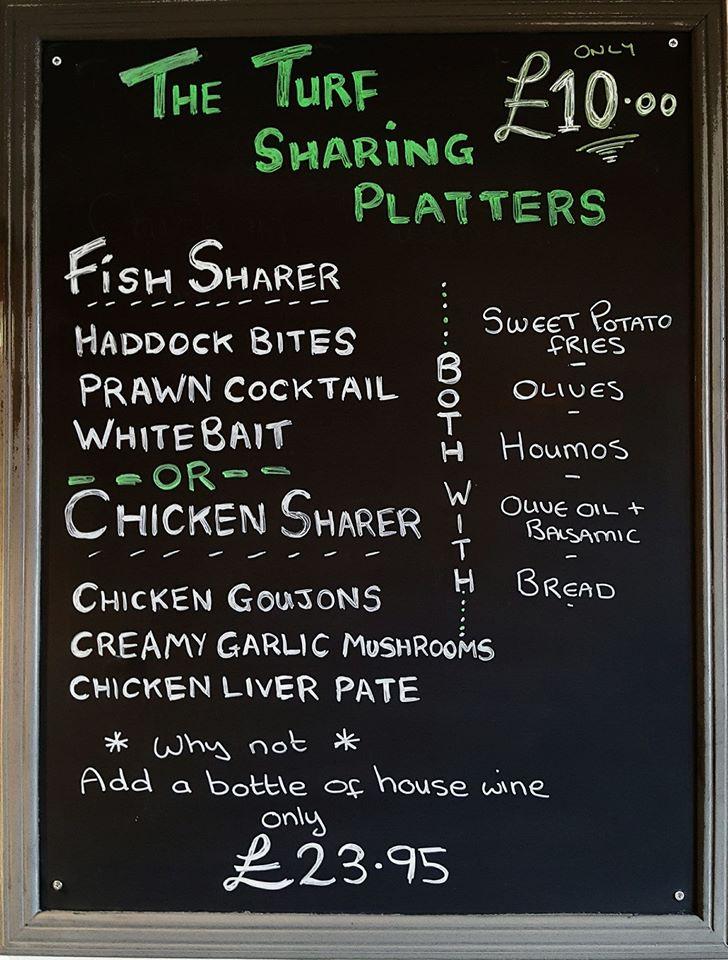 The Turf
Sharing
Platters
ONLY
£10.00
Fish Sharer
Haddock Bites
Prawn Cocktail
White Bait
- - OR - -
Chicken Sharer
Chicken Goujons
Creamy Garlic Mushrooms
Chicken Liver Pate
BOTH WITH
Sweet Potato
Fries
-
Olives
-
Houmos
-
Olive Oil +
Balsamic
-
Bread
* Why not *
Add a bottle of house wine
only
£23.95